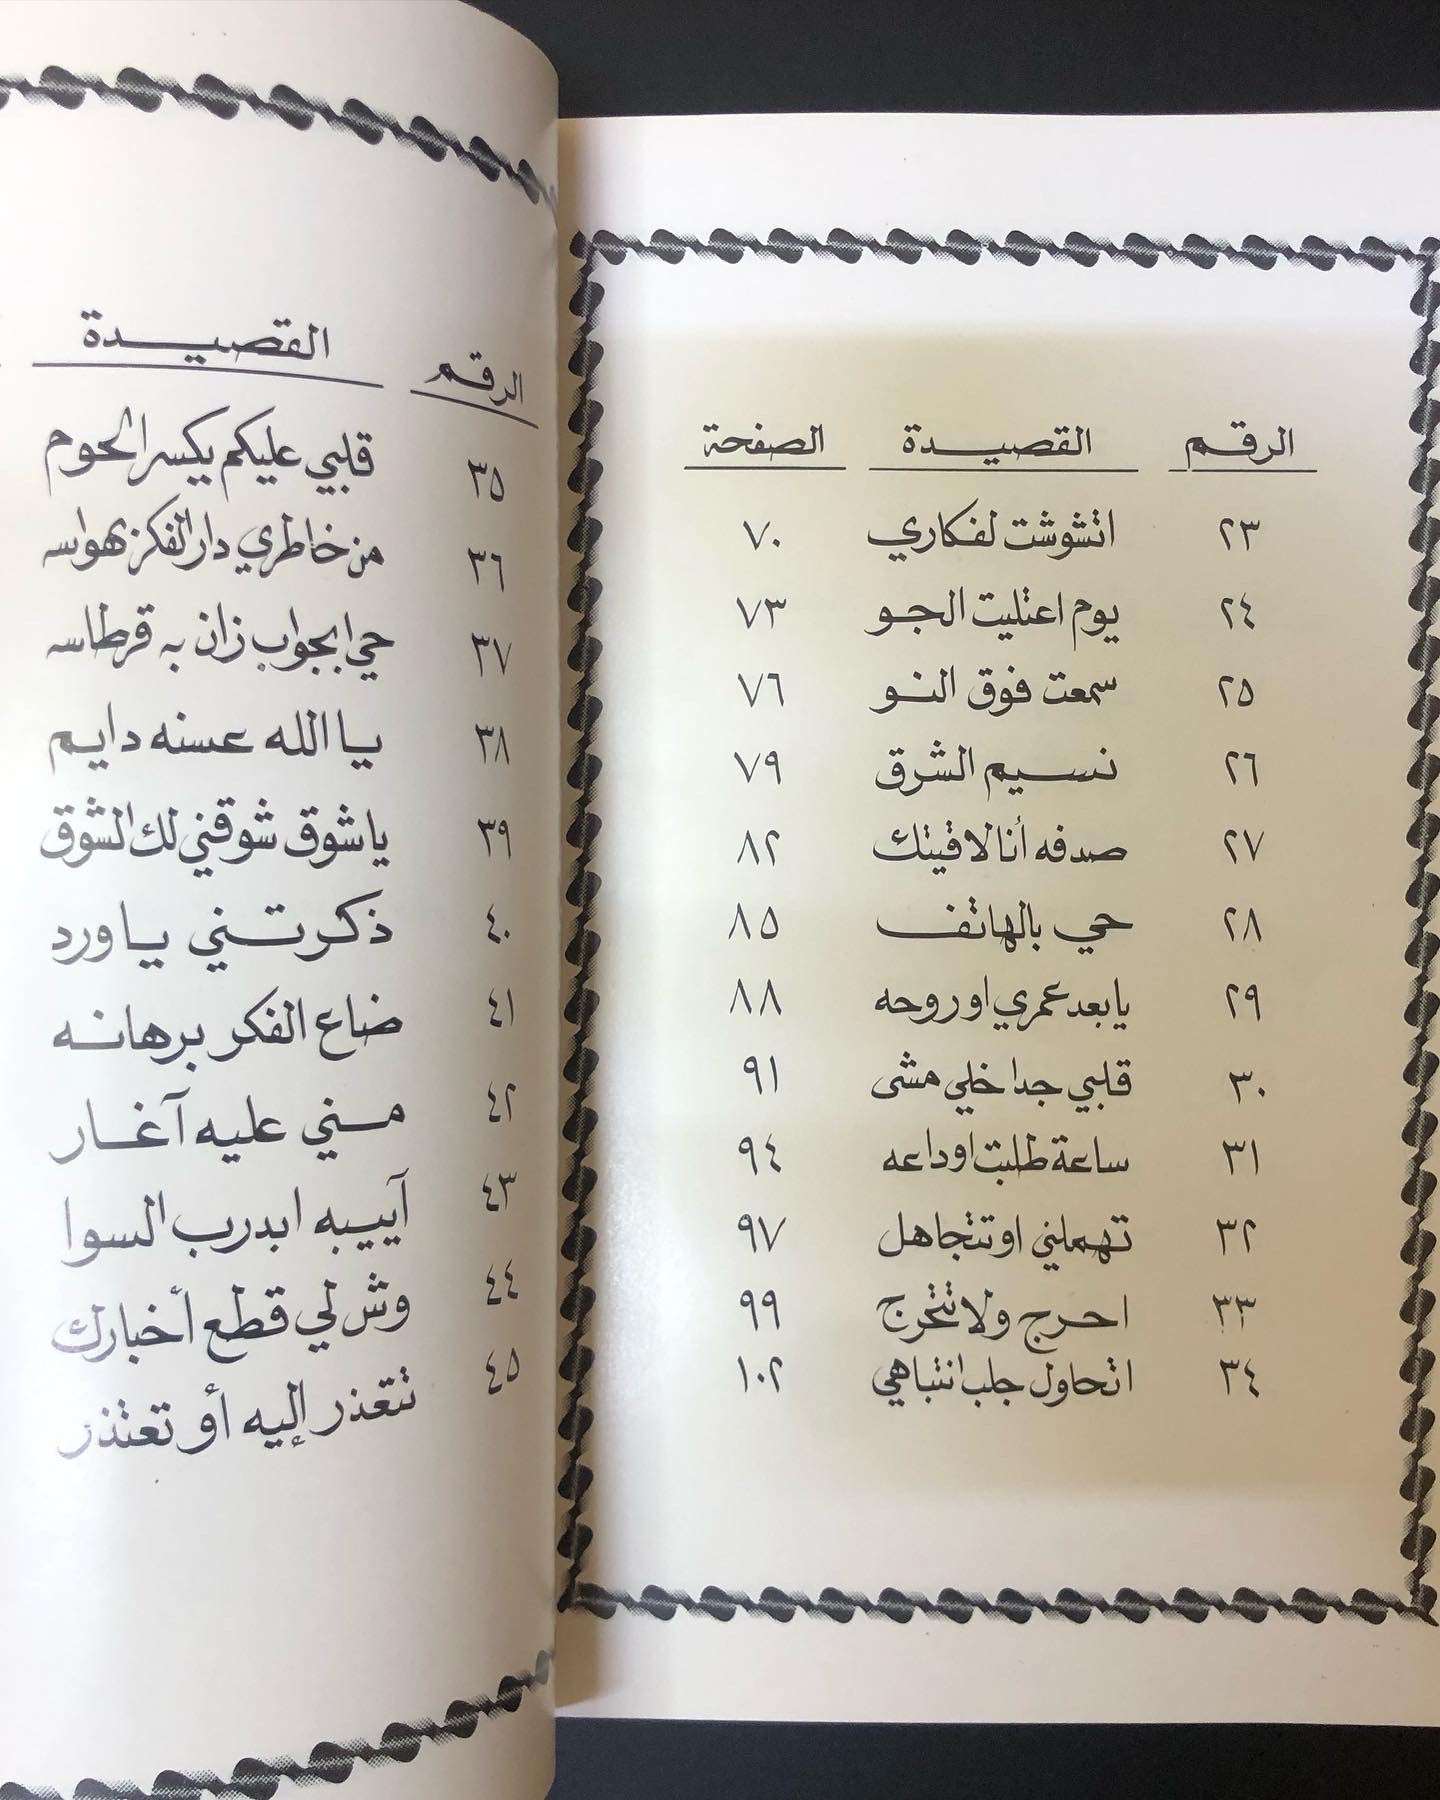 الرقم القصيدة الصفحة
٢٣ اتشوشت لفكاري ٧٠
٢٤ يوم اعتليت الجو ٧٣
٢٥ سمعت فوق النو ٧٦
٢٦ نسيم الشرق ٧٩
٢٧ صدفه أنا لاقيتك ٨٢
٢٨ حي بالهاتف ٨٥
٢٩ يا بعد عمري اوروحه ٨٨
٣٠ قلبي جدا خلي مشى ٩١
٣١ ساعة طلبت اوداعه ٩٤
٣٢ تهملني اوتتجاهل ٩٧
٣٣ احرج ولا تتحرج ٩٩
٣٤ اتحاول جلب انتباهي ١٠٢
الرقم القصيدة
٣٥ قلبي عليكم يكسر الحوم
٣٦ من خاطري دار الفكر بهواسه
٣٧ حي ابجواب زان به قرطاسه
٣٨ يا الله عسنه دايم
٣٩ يا شوق شوقني لك الشوق
٤٠ ذكرتني يا ورد
٤١ ضاع الفكر برهانه
٤٢ مني عليه آغار
٤٣ آييبه ابدرب السوا
٤٤ وش لي قطع أخبارك
٤٥ تتعذر إليه أو تعتذر